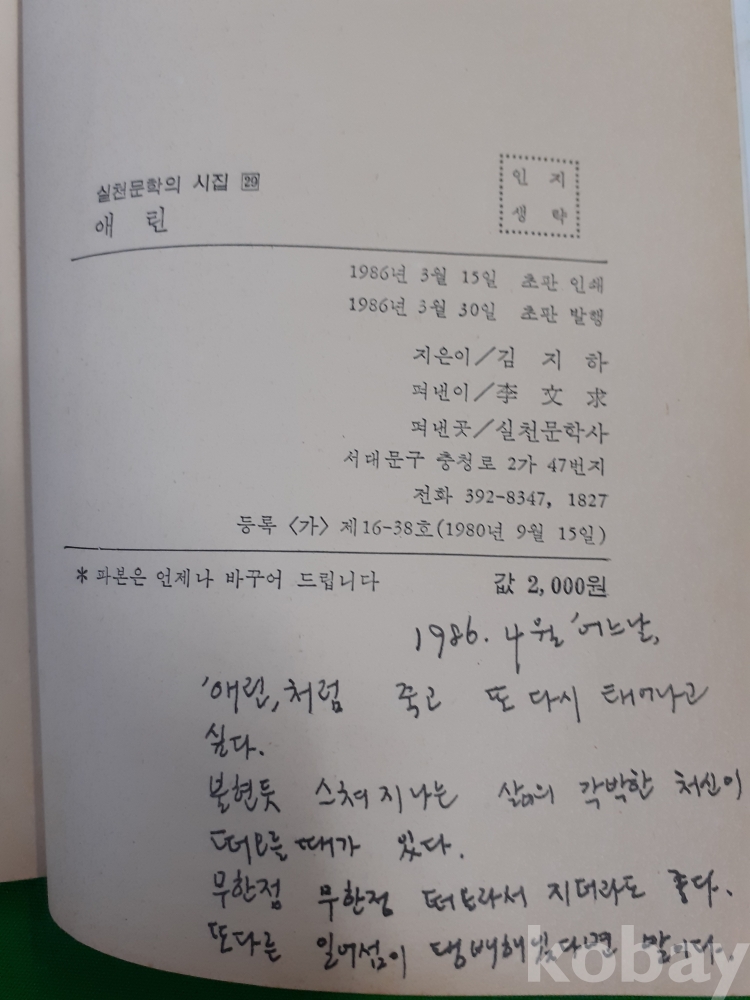 실천문학의 시집 29
애 린
인 지
생 략
1986년 3월 15일 초판 인쇄
1986년 3월 30일 초판 발행
지은이/김 지 하
펴낸이/李 文 求
펴낸곳/실천문학사
서대문구 충정로 2가 47번지
전화 392-8347, 1827
등록 〈가〉 제16-38호(1980년 9월 15일)
* 파본은 언제나 바꾸어 드립니다 값 2,000원
1986. 4월 '어느날,
'애린,처럼 죽고 또 다시 태어나고
싶다.
불현듯 스쳐지나는 삶의 각박한 처신이
떠오를 때가 있다.
무한정 무한정 떠올라서 지더라도 좋다.
또다른 일어섬이 잉배해있다면 말이다.
kobay